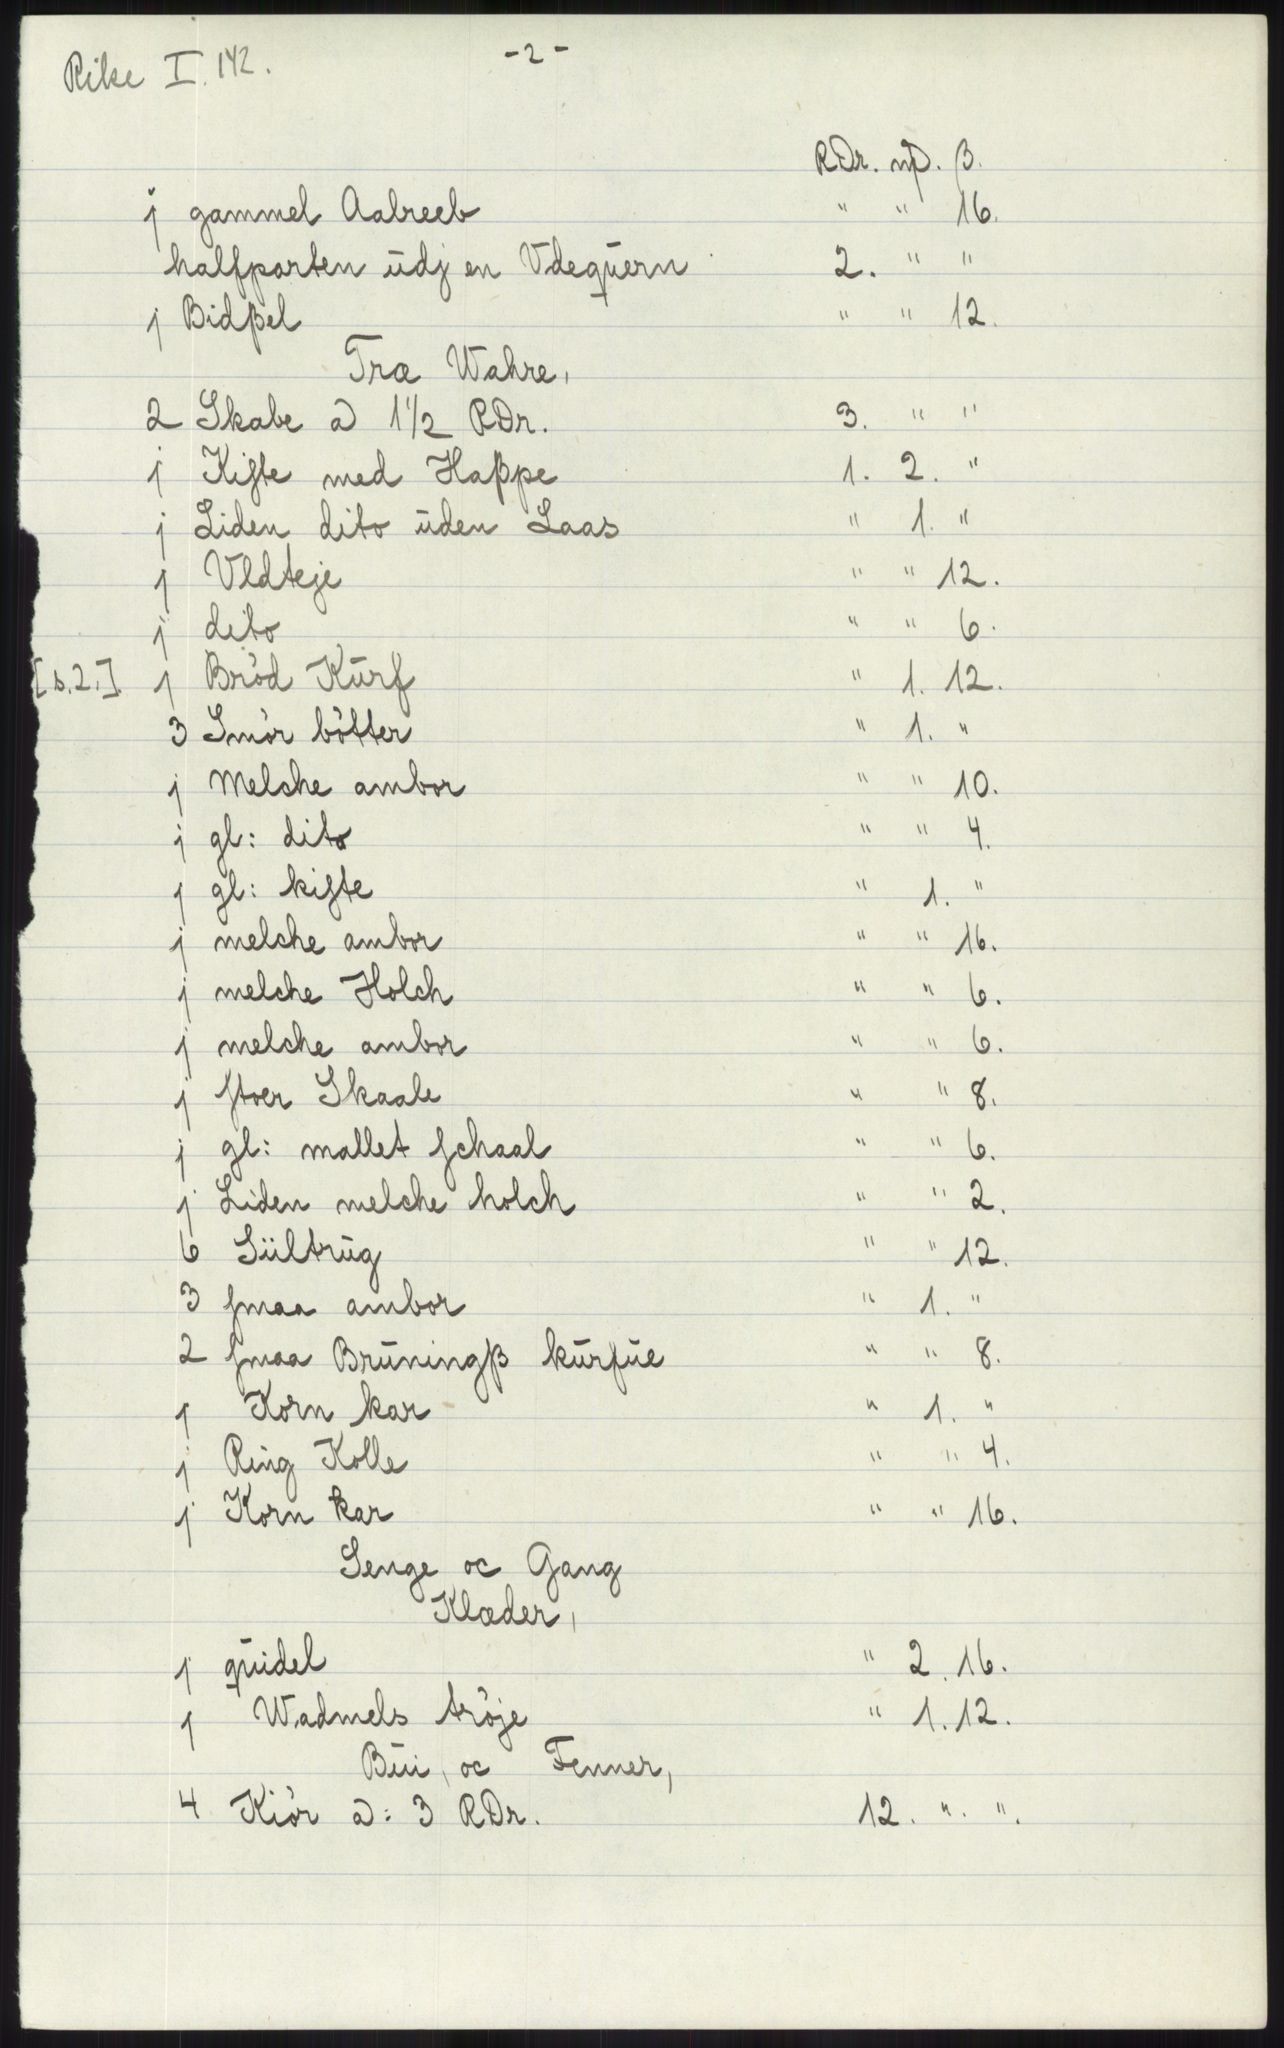 Rike I. 142.
- 2 -
RDr. mk. β.
j gammel Aabreeb " " 16.
halfparten ūdj en Vdeqūern 2. " "
j Bidβel " " 12.
Træ Wahre,
2 Skabe a 1½ RDr. 3. " "
j Kiste med Haβpe 1. 2. "
j Liden dito ūden Laas " 1. "
j Vldteje " " 12.
j dito " " 6.
[s. 2.] j Brød Kūrf " 1. 12.
3 Smör bötter " 1. "
j Melche ambor " " 10.
j gl: dito " " 4.
j gl: kiste " 1. "
j melche ambor " " 16.
j melche Holch " " 6.
j melche ambor " " 6.
j stoer Skaale " " 8.
j gl: mallet schaal " " 6.
j Liden melche holch " " 2.
6 Sültrūg " " 12.
3 smaa ambor " 1. "
2 smaa Brūningβ kūrfūe " " 8.
j Korn kar " 1. "
j Ring Kolle " " 4.
j Korn kar " " 16.
Senge oc Gang
Klæder,
j qūidel " 2. 16.
j Wadmels tröje " 1. 12.
Būi, oc Fenner,
4 Kiör a: 3 RDr. 12. ". ".